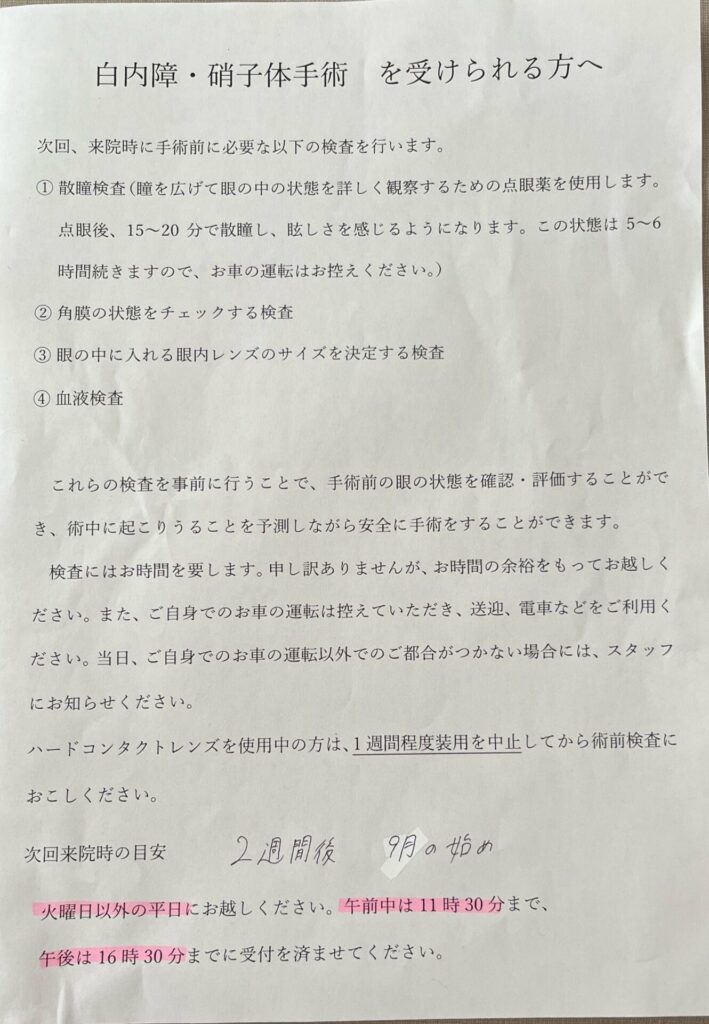 白内障・硝子体手術　を受けられる方へ
次回、来院時に手術前に必要な以下の検査を行います。
① 散瞳検査（瞳を広げて眼の中の状態を詳しく観察するための点眼薬を使用します。
点眼後、15～20 分で散瞳し、眩しさを感じるようになります。この状態は 5～6
時間続きますので、お車の運転はお控えください。）
② 角膜の状態をチェックする検査
③ 眼の中に入れる眼内レンズのサイズを決定する検査
④ 血液検査
これらの検査を事前に行うことで、手術前の眼の状態を確認・評価することがで
き、術中に起こりうることを予測しながら安全に手術をすることができます。
検査にはお時間を要します。申し訳ありませんが、お時間の余裕をもってお越しく
ださい。また、ご自身でのお車の運転は控えていただき、送迎、電車などをご利用く
ださい。当日、ご自身でのお車の運転以外でのご都合がつかない場合には、スタッフ
にお知らせください。
ハードコンタクトレンズを使用中の方は、1 週間程度装用を中止してから術前検査に
おこしください。
次回来院時の目安　2週間後　9月の始め
火曜日以外の平日にお越しください。午前中は 11 時 30 分まで、
午後は 16 時 30 分までに受付を済ませてください。